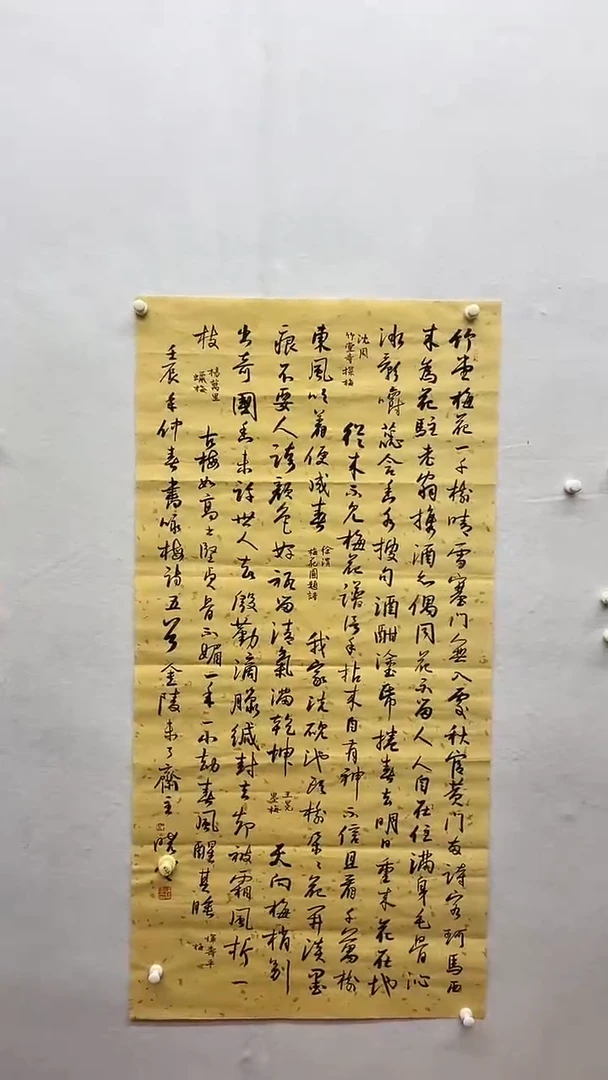 竹堂梅花一千樹晴雪塞門無入處秋官黄門兩詩客珂馬西
來為花駐老翁攜酒亦偶同花不留人人自在住滿身毛骨沁
冰影嚼蕊含香各搜句酒酣塗紙捲春去明日重來花在地
沈周
竹堂寺探梅
從來不見梅花譜信手拈來自有神不信且看千萬樹
東風吹着便成春
徐渭
梅花圖題詩
我家洗硯池頭樹朵朵花開淡墨
痕不要人誇顏色好祇留清氣滿乾坤
王冕
墨梅
天向梅梢別
出奇國香未許世人知殷勤滴臘緘封去却被霜風折一
枝
楊萬里
蠟梅
古梅如高士堅貞骨不媚一年一小劫春風醒其睡
惲壽平
梅
壬辰年仲春書詠梅詩五首金陵未了齋主